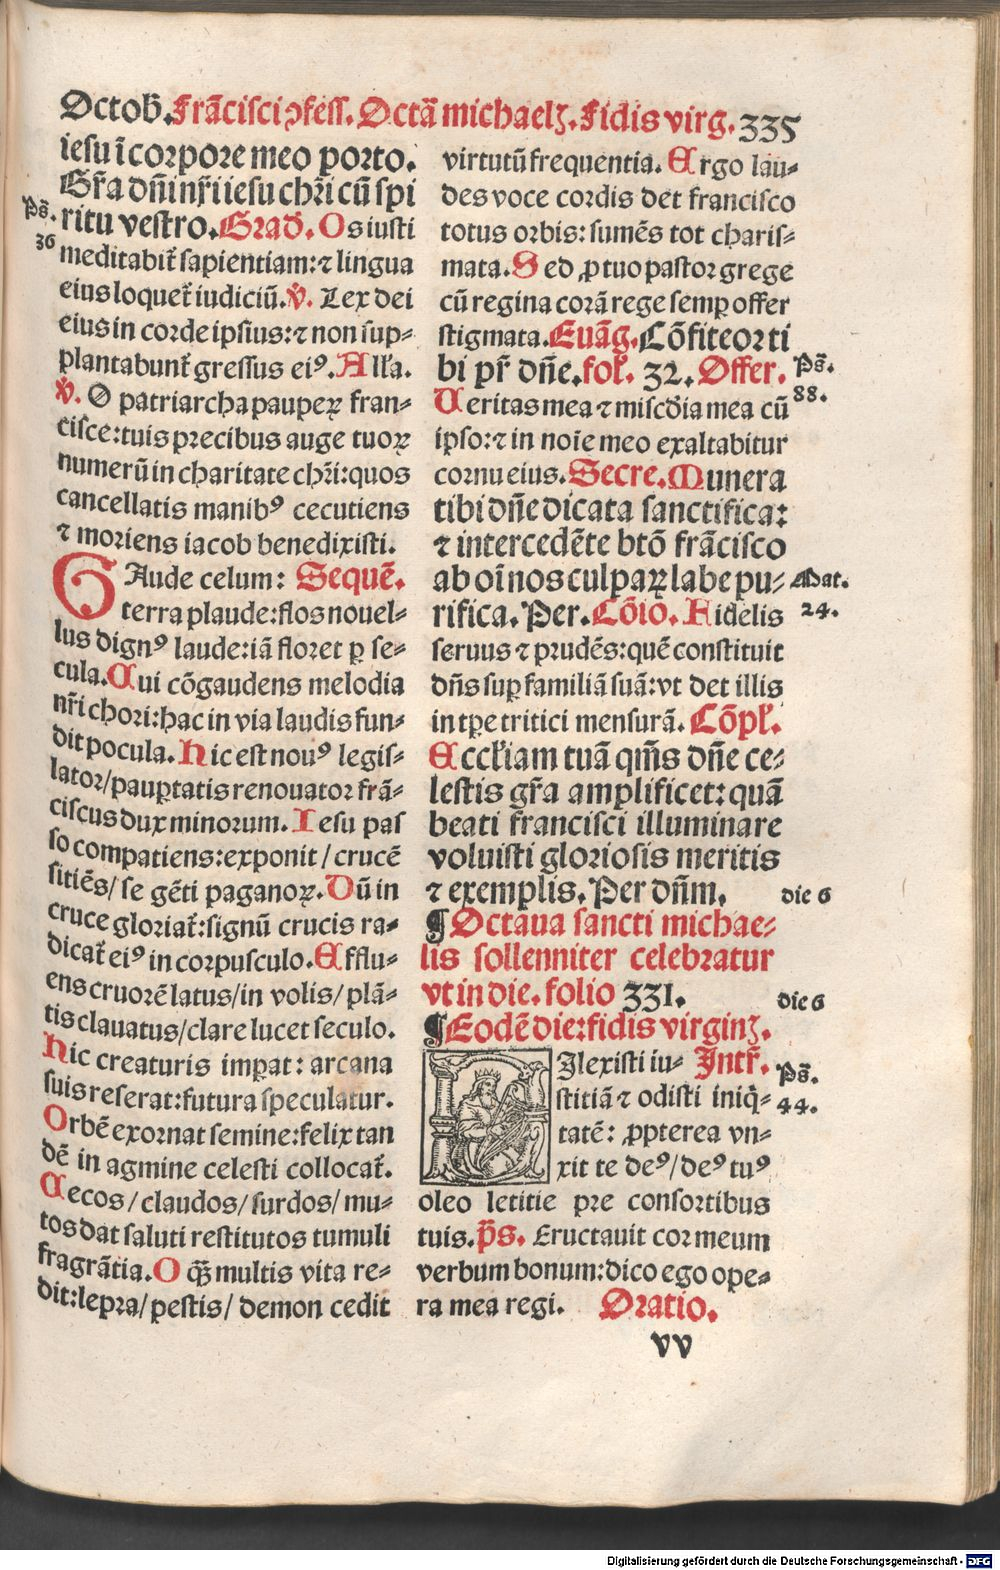 Octob̃. Frãcisci ꝯfess. Octã michaelꝫ. Fidis virg. 335
iesu ĩ corpore meo porto.
Gr̃a dñi nr̃i iesu chr̃i cũ spi
Ps̃. 36
ritu vestro. Grad̃. Os iusti
meditabit̃ sapientiam: ⁊ lingua
eius loquet̃ iudiciũ. v̾. Lex dei
eius in corde ipsius: ⁊ non sup-
plantabunt̃ gressus eiꝰ. Alľa.
v̾. O patriarcha pauperꝝ fran-
cisce: tuis precibus auge tuoꝝ
numerũ in charitate chr̃i: quos
cancellatis manibꝰ cecutiens
⁊ moriens iacob benedixisti.
GAude celum: Sequẽ.
terra plaude: flos nouel-
lus dignꝰ laude: iã floret ꝑ se-
cula. Cui cõgaudens melodia
nr̃i chori: hac in via laudis fun-
dit pocula. Hic est nouꝰ legis-
lator/ pauꝑtatis renouator frã-
ciscus dux minorum. Iesu pas
so compatiens: exponit/ crucẽ
sitiẽs/ se gẽti paganoꝝ. Dũ in
cruce gloriat̃: signũ crucis ra-
dicat̃ eiꝰ in corpusculo. Efflu-
ens cruorẽ latus/ in volis/ plã-
tis clauatus/ clare lucet seculo.
Hic creaturis imꝑat: arcana
suis reserat: futura speculatur.
Orbẽ exornat semine: felix tan
dẽ in agmine celesti collocat̃.
Cecos/ claudos/ surdos/ mu-
tos dat saluti restitutos tumuli
fragrãtia. O qꝫ̃ multis vita re-
dit: lepra/ pestis/ demon cedit
virtutũ frequentia. Ergo lau-
des voce cordis det francisco
totus orbis: sumẽs tot charis-
mata. Sed ꝓ tuo pastor grege
cũ regina corã rege semꝑ offer
stigmata. Euãg. Cõfiteor ti
bi pr̃ dñe. foľ. 32. Offer.
Ps̃. 88.
Ueritas mea ⁊ miscd̃ia mea cũ
ipso: ⁊ in noĩe meo exaltabitur
cornu eius. Secre. Munera
tibi dñe dicata sanctifica:
⁊ intercedẽte btõ frãcisco
ab oĩ nos culparꝝ labe pu-
Mat. 24.
rifica. Per. Cõio. Fidelis
seruus ⁊ prudẽs: quẽ constituit
dñs suꝑ familiã suã: vt det illis
in tꝑe tritici mensurã. Cõpľ.
Eccľiam tuã qm̃s dñe ce-
lestis gr̃a amplificet: quã
beati francisci illuminare
voluisti gloriosis meritis
⁊ exemplis. Per dñm.
die 6
¶ Octaua sancti michae-
lis sollenniter celebratur
vt in die. folio 331.
die 6
¶ Eodẽ die: fidis virginꝫ.
DIlexisti iu- Intr̃.
Ps̃. 44.
stitiã ⁊ odisti iniq̃-
tatẽ: ꝓpterea vn-
xit te deꝰ/ deꝰ tuꝰ
oleo letitie pre consortibus
tuis. p̃s. Eructauit cor meum
verbum bonum: dico ego ope-
ra mea regi. Oratio.
vv
Digitalisierung gefördert durch die Deutsche Forschungsgemeinschaft - DFG